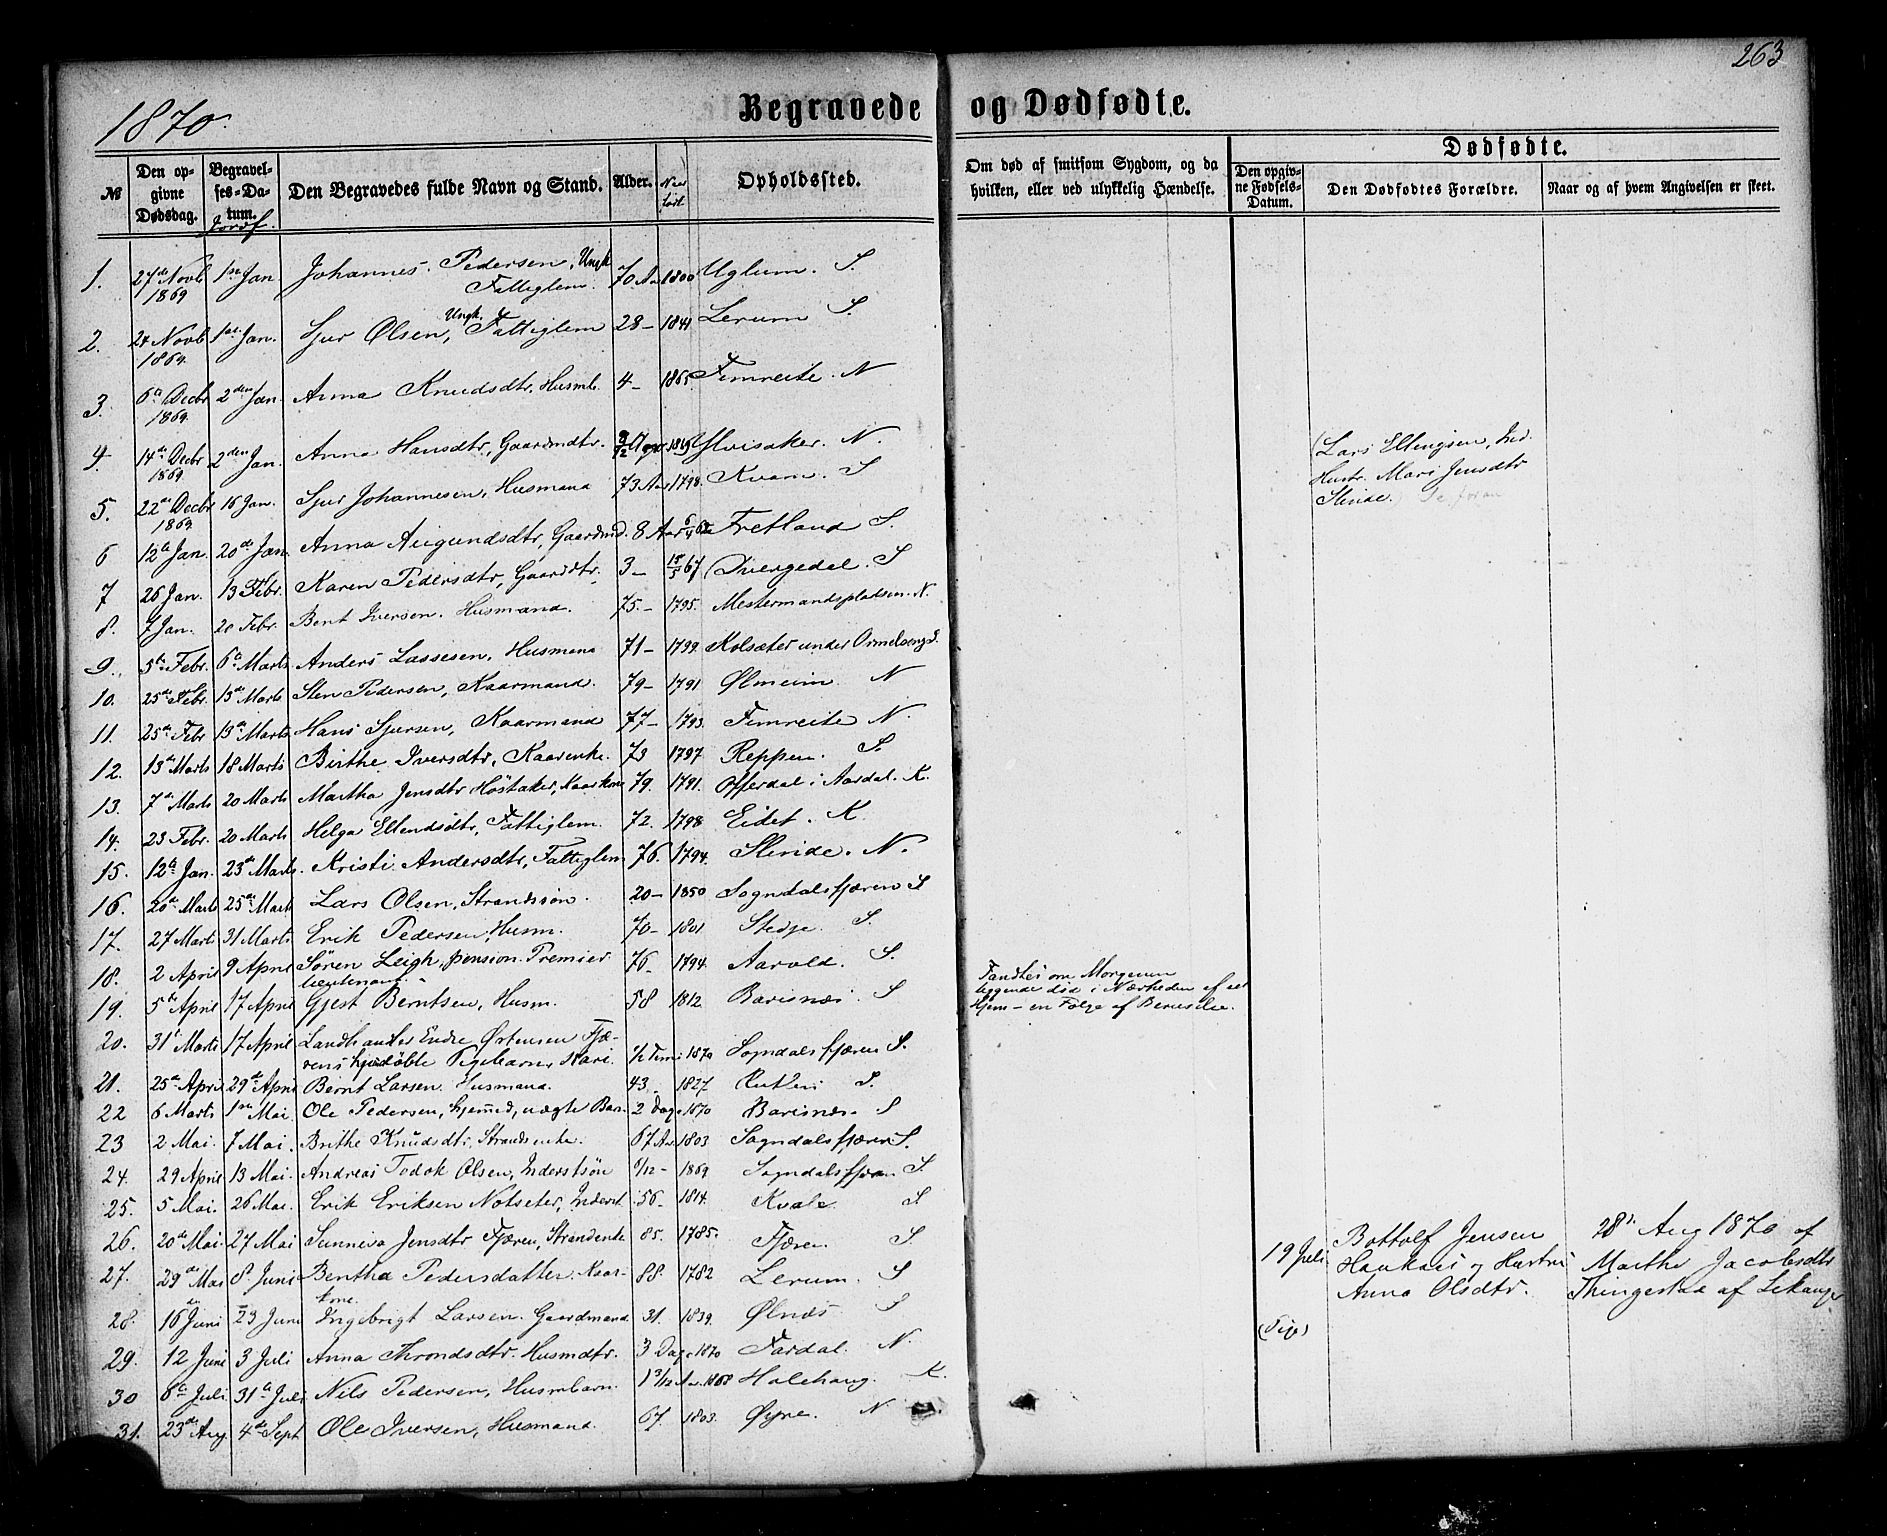 263
1870.
Begravede og Dødfødte.
№
Den opgivne Dødsdag.
Begravelses-Datum.
Jordf.
Den Begravedes fulde Navn og Stand.
Alder.
Naar født
Opholdssted.
Om død af smitsom Sygdom, og da hvilken, eller ved ulykkelig Hændelse.
Dødfødte.
Den opgivne Fødsels-Datum.
Den Dødfødtes Forældre.
Naar og af hvem Angivelsen er skeet.
1. 27de Novb 1869 1ste Jan Johannes Pedersen, Ungk. Fattiglem. 70 Aar 1800 Uglum. S.
2. 24 Novb 1869. 1ste Jan. Sjur Olsen, Ungk. Fattiglem 28 – 1841 Lerum S.
3. 6te Decbr 1869. 2den Jan. Anna Knudsdtr, Husmb. 4 – 1865 Fimreite. N
4. 14de Decbr 1869. 2den Jan. Anna Hansdtr, Gaardmdtr. Hvisaker. N.
5. 22de Decbr 1869. 16 Jan. Sjur Johannesen, Husmand 73 Aar 1798. Kvam. S
6 12te Jan. 20de Jan. Anna Augundsdtr, Gaardmd. 8 Aar Fretland S.
7 26 Jan. 13 Febr. Karen Pedersdtr, Gaardtr. 3 – 15/5 67 Dvergedal. S
8. 7 Jan. 20 Febr. Bent Iversen. Husmand. 75. – 1795. Mestermandspladsen. N.
9. 5te Febr. 6te Marts Anders Lassesen, Husmand 71 – 1799. Kolsæter under Ormelseng S.
10. 25de Febr. 13de Marts Sten Pedersen, Kaarmand. 79 – 1791 Ølmeim. N
11. 25de Febr 13de Marts Hans Sjursen, Kaarmand 77 – 1793. Fimreite N.
12. 13de Marts 18 Marts Birthe Iversdtr, Kaarenke. 73 1797. Reppen. S.
13. 7de Marts 20 Marts Martha Jensdtr Høstaker, Kaarkone 79. 1791. Offerdal i Aardal. K.
14. 23 Febr. 20 Marts Helga Ellendsdtr, Fattiglem. 72. 1798 Eidet. K.
15. 12te Jan. 23de Marts. Kristi Andersdtr, Fattiglem 76. 1794. Slinde. N.
16. 20de Marts 25de Marts Lars Olsen, Strandssøn. 20 – 1850 Sogndalsfjæren S
17. 27 Marts 31 Marts Erik Pedersen, Husm. 70 – 1801 Stedje. S.
18. 2 April 9 April Søren Leigh, pension. Premierlieutenant. 76 – 1794. Aarold. S.
19. 5te April 17 April Gjest Berntsen, Husm. 58 1812. Barisnæs. S
Fandtes om Morgenen
liggende død i Nærheden af sit
Hjem – en Følge af Beruselse.
20. 31te Marts 17 April Landhandler Endre Ørtensen Fjærens hjemdøbte Pigebarn, Kari. 1/2 Time 1870 Sogndalsfjæren S.
21. 25de April 29de April Bernt Larsen. Husmand. 43 – 1827 Rutlin S.
22 6 Marts 1ste Mai. Ole Pedersen, hjemmed, uægte Barn 2 Dage 1870 Barisnæs. S
23 2. Mai. 7 Mai. Brithe Knudsdtr, Strandenke. 67 Aar 1803. Sogndalsfjæren S.
24. 29 April 13 Mai. Andreas Olsen, Inderstsøn 1869 Sogndalsfjæren S
25. 5 Mai. 26 Mai. Erik Eriksen Notseter, Inderst 56 – 1814. Kvale S
26. 20de Mai. 27 Mai Sunneva Jensdtr Fjæren, Strandenke 85. 1785. Fjæren S
27. 29de Mai 8de Juni Bentha Pedersdatter. Kaarkone. 88. 1782 Lerum. S
28. 16de Juni 23 Juni Ingebrigt Larsen. Gaardmand. 31. 1839. Ølnæs. S
29. 12 Juni 3 Juli Anna Throndsdtr. Husmdtr. 3 Dage 1870 Fardal. N
30 6te Juli 31te Juli Nils Pedersen, Husmbarn. 1 Aar. 1868 Holehaug. K.
31. 23de Aug. 4de Sept Ole Iversen, Husmand. 67. 1803. Øyre. N
(Lars Ellingsen, Ind.
Hustr. Mari Jensdtr
Slinde.) Se foran
19 Juli
(Pige)
Bottolf Jensen
og Hustru
Anna Olsdtr.
28de Aug 1870 af
Marthe Jacobsdtr
Thingstad af Leikanger